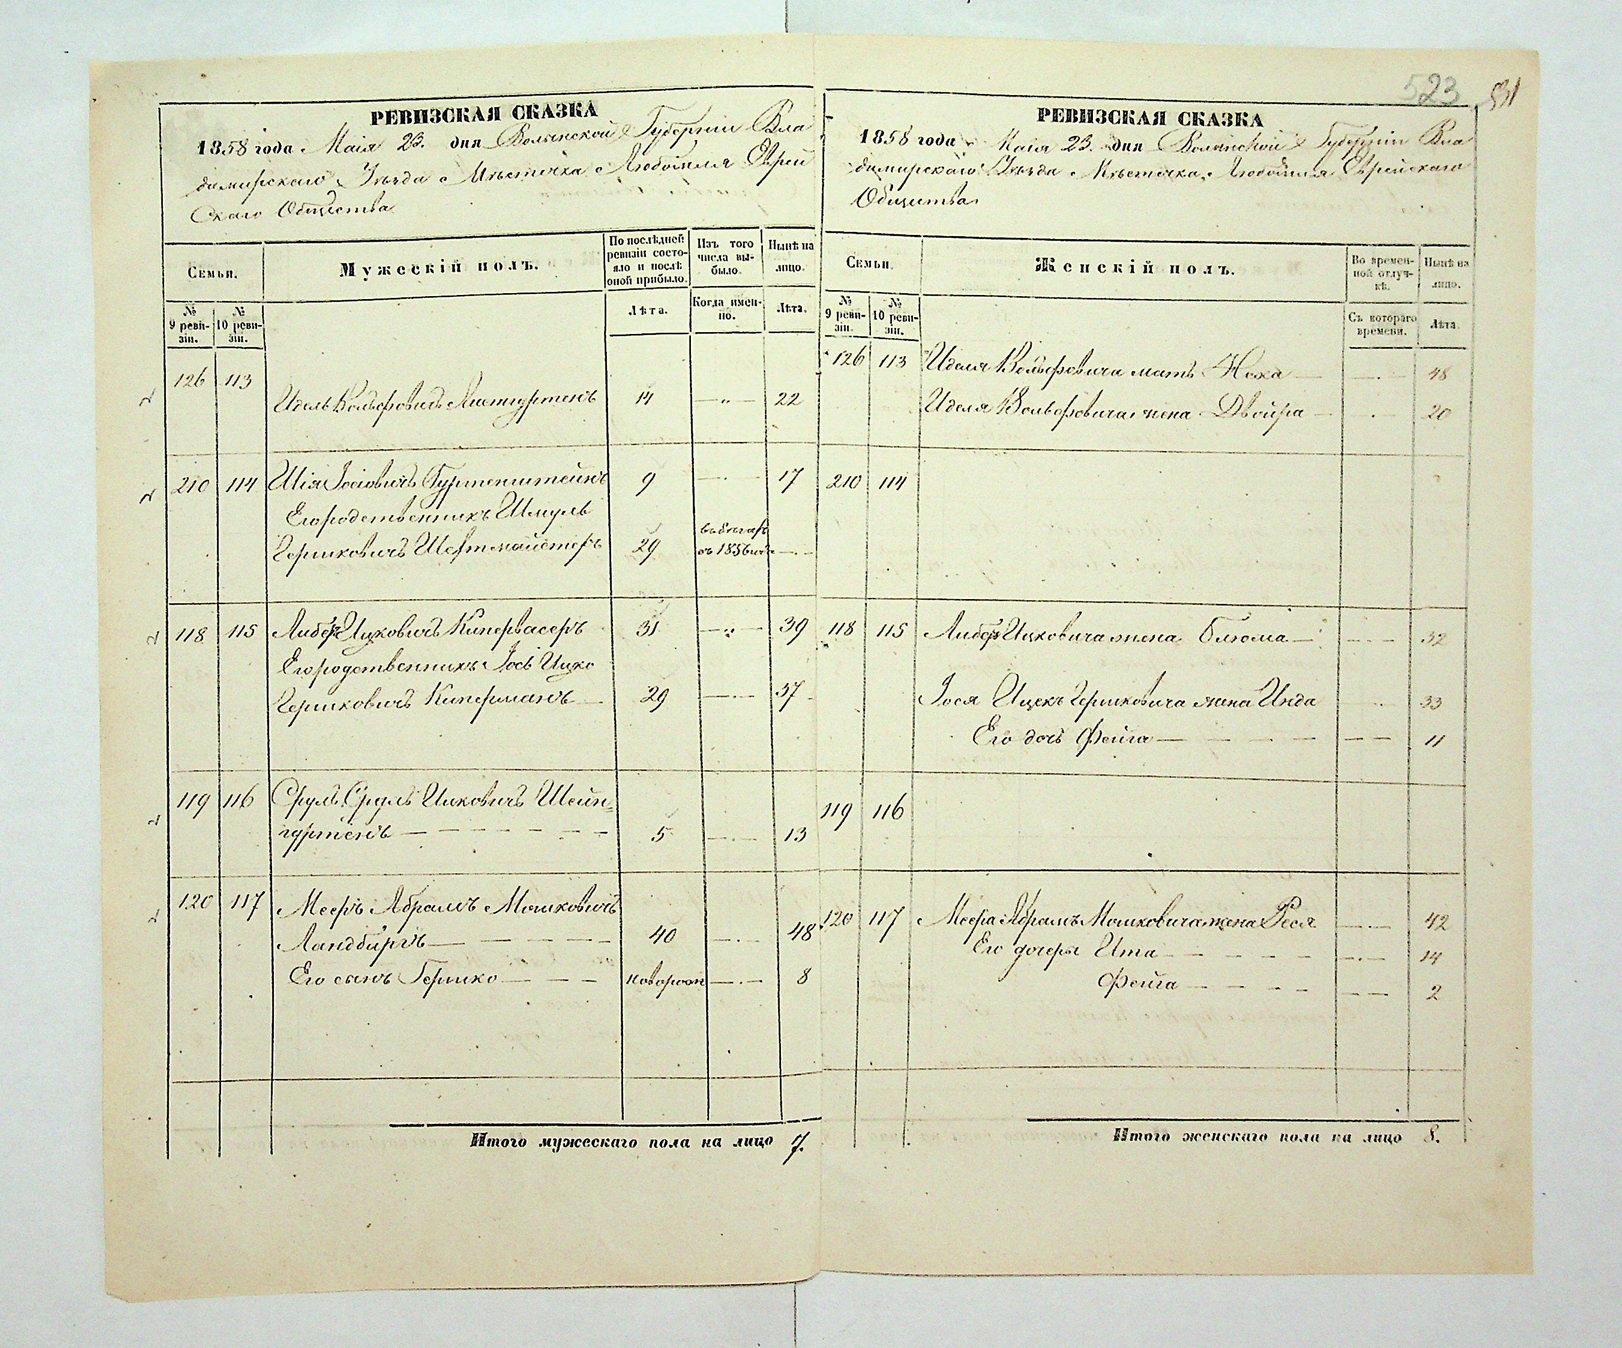 523 531
РЕВИЗСКАЯ СКАЗКА
1858 года Маія 23. дня Волынской Губерніи Вла
димирскаго Уѣзда Мѣстечка Любомля Еврей
скаго Общества
Семьи.
Мужескій полъ.
По послѣдней ревизіи состояло и послѣ оной прибыло.
Изъ того числа выбыло.
Нынѣ на лицо.
№ 9 ревизіи.
№ 10 ревизіи.
Лѣта.
Когда именно.
Лѣта.
126 113
Идель Вольфовичъ 14 22
210 114 Шія Іосіовичъ Гуртенштейнъ 9 17
Его родственникъ Шмуль
Гершковичъ 29 въ 1856
118 115 Либеръ Ицковичъ Кипервасеръ 31 39
Его родственникъ Іось Ицко
Гершковичъ Киперманъ 29 37
119 116 Сруль Сруль Ицковичъ Шейн=
гуртенъ 5 13
120 117 Мееръ Абрамъ Мошковичъ
Ландбиргъ 40 48
Его сынъ Гершко новорож 8
Итого мужескаго пола на лицо 7.
РЕВИЗСКАЯ СКАЗКА
1858 года Маія 23. дня Волынской Губерніи Вла
димирскаго Уѣзда Мѣстечка Любомля Еврейскаго
Общества
Семьи.
Женскій полъ.
Во временной отлучкѣ.
Нынѣ на лицо.
№ 9 ревизіи.
№ 10 ревизіи.
Съ котораго времени.
Лѣта.
126 113 Иделя Вольфовича мать Неха 48
Иделя Вольфовича жена Двойра 20
210 114
118 115 Либера Ицковича жена Блюма 32
Іося Ицекъ Гершковича жена Инда 33
Его дочь Фейга 11
119 116
120 117 Меера Абрамъ Мошковича жена Рося 42
Его дочери Ита 14
Фейга 2
Итого женскаго пола на лицо 8.